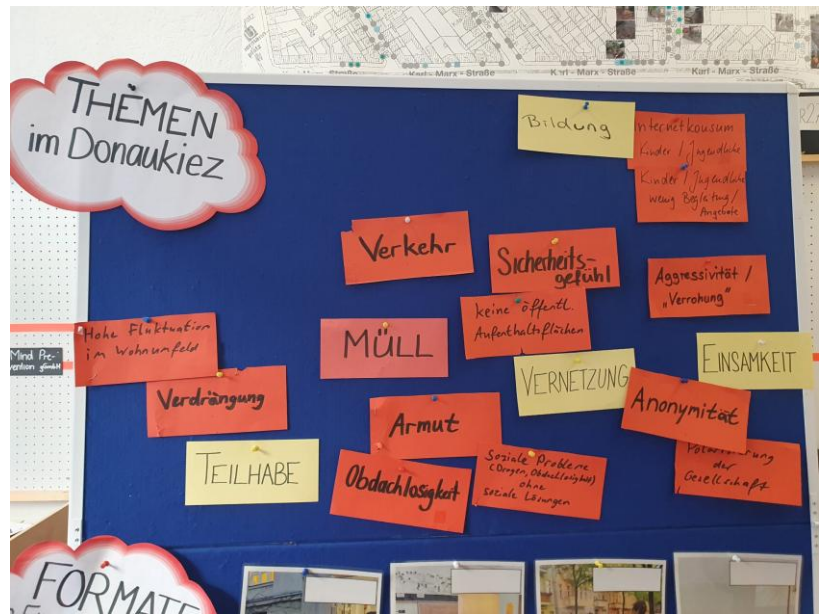 Karl - Marx - Straße
Karl - Marx - Straße
Karl - Marx - Straße
THEMEN
im Donaukiez
Bildung
Internetkonsum
Kinder / Jugendliche
Kinder / Jugendliche
wenig Begleitung /
Angebote
Verkehr
Sicherheits-
gefühl
Aggressivität /
„Verrohung"
keine öffentl.
Aufenthaltsflächen
Hohe Fluktuation
im Wohnumfeld
MÜLL
VERNETZUNG
EINSAMKEIT
Mind Pre-
vention gGmbH
Verdrängung
Armut
Anonymität
TEILHABE
Obdachlosigkeit
Soziale Probleme
(Drogen, Obdachlosigkeit)
ohne
soziale Lösungen
der
Gesellschaft
FORMATE